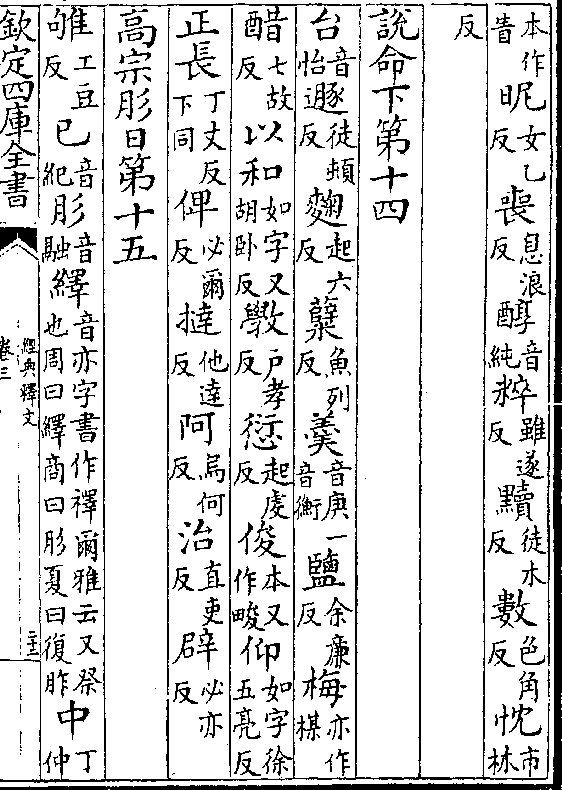 本作旹昵女乙反喪息浪反醇音純粹雖遂反黷徒木反數色角反忱市林
反
說命下第十四
台音怡遯徒頓反麴起六反糵魚列反羮音庚一音衡鹽余廉反梅亦作楳
醋七故反以和如字又胡卧反斆戶孝反愆起虔反俊本又作畯仰如字徐五亮反
正長丁丈反下同俾必爾反撻他達反阿烏何反治直吏反辟必亦反
高宗肜日第十五
雊工豆反已音紀肜音融繹音亦字書作襗爾雅云又祭也周曰繹商曰肜夏曰復胙中丁仲
欽定四庫全書
經典釋文
卷三
二十三